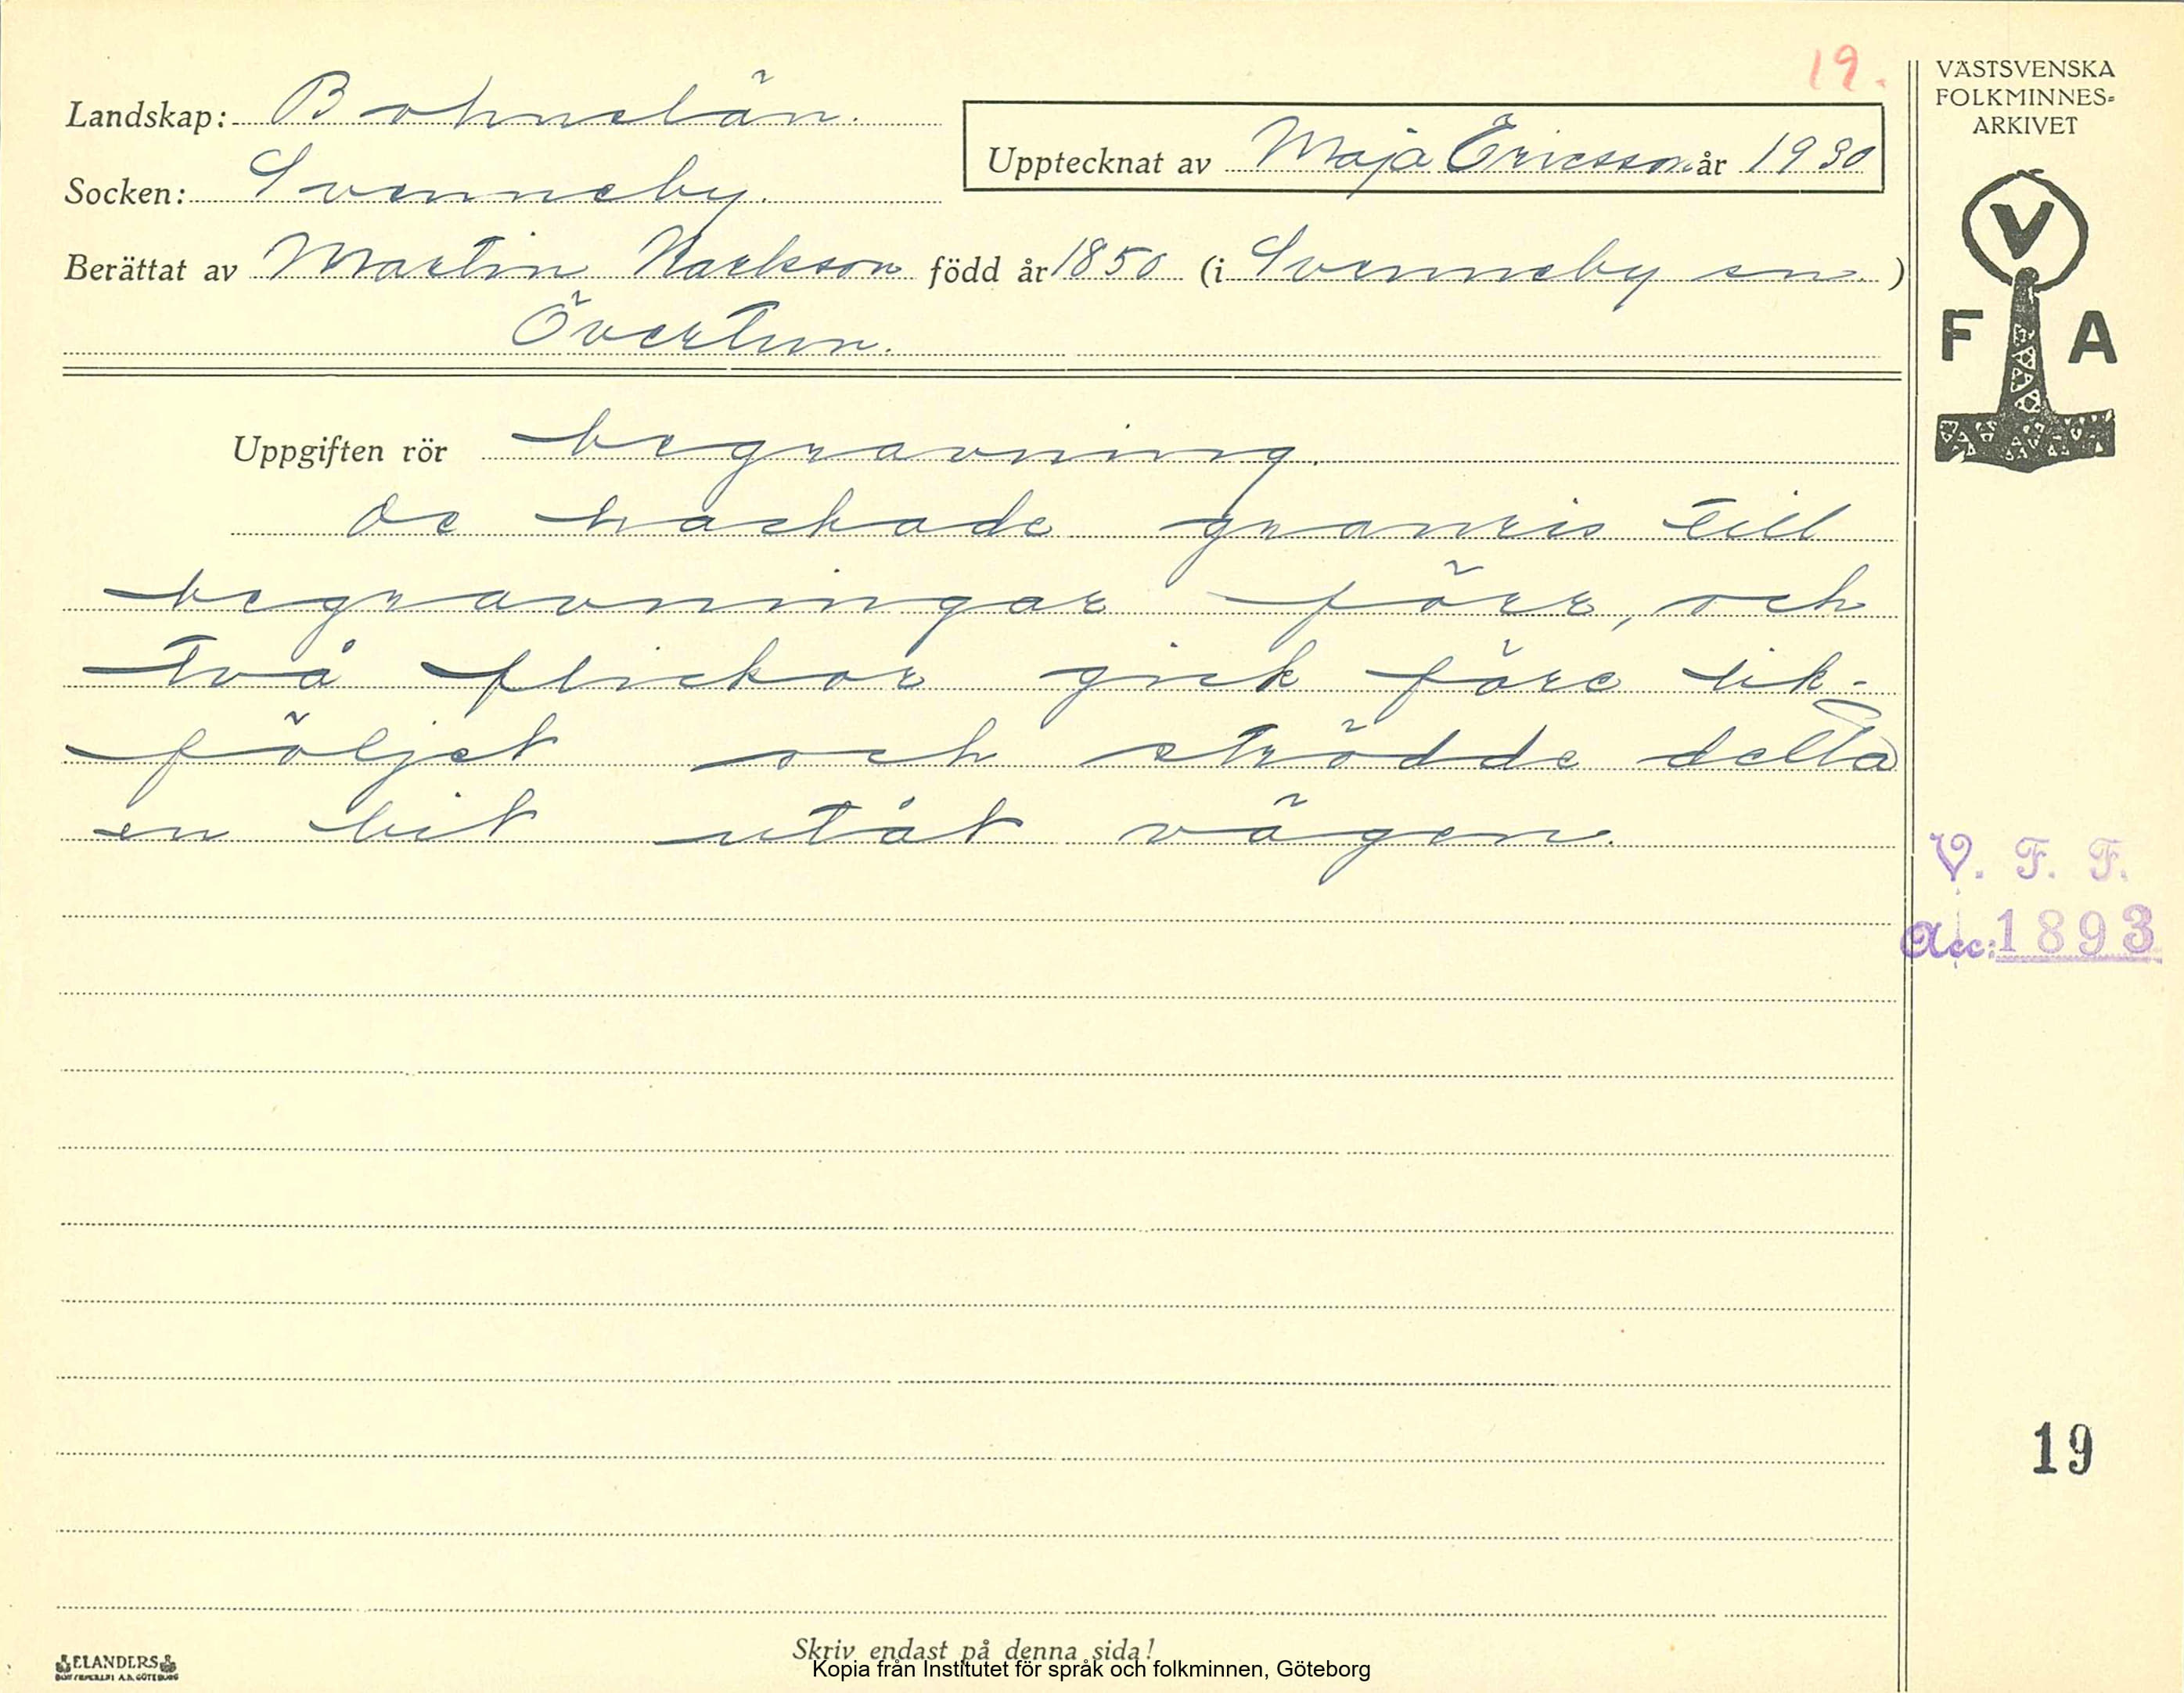 19.
Landskap: Bohuslän.
Upptecknat av Maja Ericsson år 1930
Socken: Svenneby.
Berättat av Martin född år 1850 (i Svenneby sn.)
Övertun.
VÄSTSVENSKA
FOLKMINNES=
ARKIVET
V
F A
Uppgiften rör begravning.
De hackade granris till
begravningar förr, och
två flickor gick före lik-
följet och strödde detta
en bit utåt vägen.
V. F. F.
Acc: 1893
19
ELANDERS
Skriv endast på denna sida!
Kopia från Institutet för språk och folkminnen, Göteborg